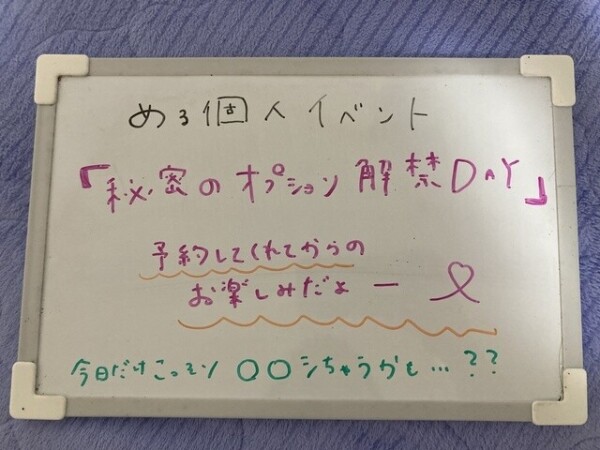 める個人イベント
「秘密のオプション解禁DAY」
予約してくれてからの
お楽しみだよー♡
今日だけこっそり〇〇シちゃうかも…??